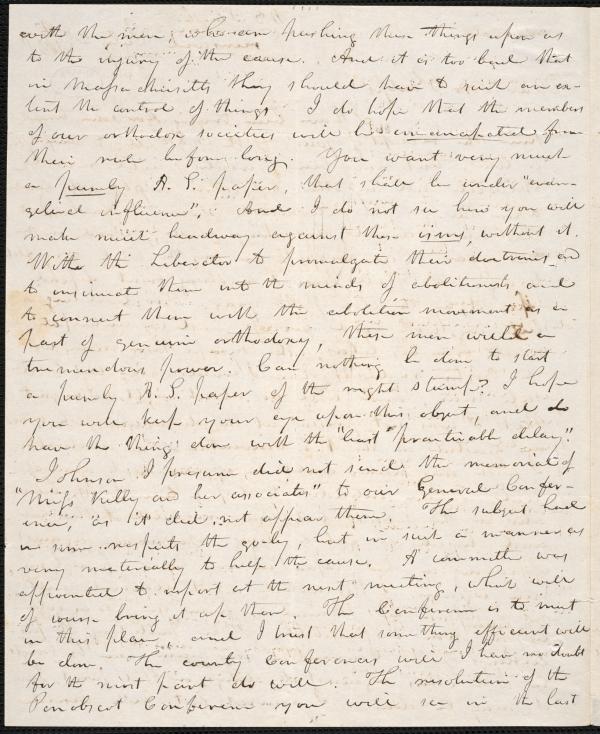 with the men, who are pushing these things upon us
to the injury of the cause. And it is too bad that
in Massachusetts they should have to such an ex-
tent the control of things. I do hope that the members
of our orthodox societies will be emancipated from
their rule before long. You want very much
a purely A. S. paper, that shall be under "evan-
gelical influence". And I do not see how you will
make much headway against these isms, without it.
With the Liberator to promulgate their doctrines and
to insinuate them into the minds of abolitionists, and
to connect them with the abolition movement as a
part of genuine orthodoxy, these men wield a
tremendous power. Can nothing be done to start
a purely A. S. paper of the right stamp? I hope
you will keep your eye upon this object, and do
have the thing done with the "least practicable delay".
Johnson I presume did not send the memorial of
"Miss Kelly and her associates" to our General Confer-
ence, as it did not appear there. The subject had
in some respects the go-by, but in such a manner as
very materially to help the cause. A committee was
appointed to report at the next meeting, which will
of course bring it up then. The Conference is to meet
in this place, and I trust that something efficient will
be done. The county Conferences will I have no doubt
for the most part do well. The resolution of the
Penobscot Conference you will see in the last